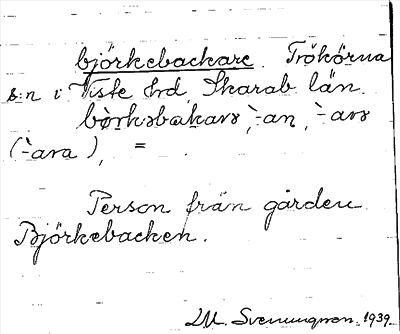 björkebackare. Trökörna
s:n i Viste hd, Skarab. län.
bö̀rkəbakarə, `-an, `-arə
(`-ara), =
Person från gården
Björkebacken.
1939.